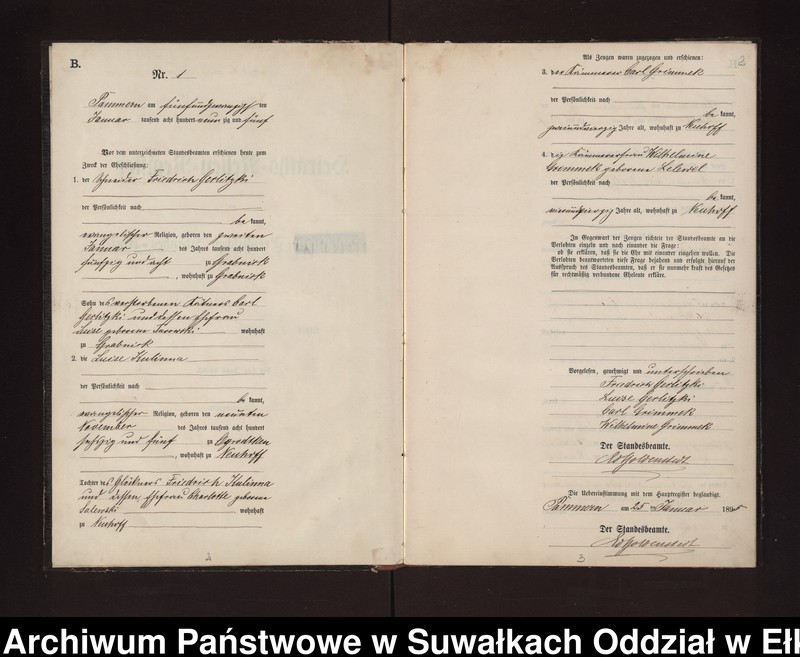 B.
Nr. 1
Pammern am fünfundzwanzigsten
Januar tausend acht hundert neunzig und fünf
Vor dem unterzeichneten Standesbeamten erschienen heute zum
Zweck der Eheschließung:
1. der Schneider Friedrich Gerlitzki
der Persönlichkeit nach
bekannt,
evangelischer Religion, geboren den zweiten
Januar des Jahres tausend acht hundert
fünfzig und acht zu Grabnick
, wohnhaft zu Grabnick
Sohn des verstorbenen Käthners Carl
Gerlitzki und dessen Ehefrau
Luise geborene wohnhaft
zu Grabnick
2. die Luise Kulinna
der Persönlichkeit nach
bekannt,
evangelischer Religion, geboren den neunten
November des Jahres tausend acht hundert
sechszig und fünf zu Ogrodtken
, wohnhaft zu Neuhoff
Tochter des Glöckners Friedrich Kulinna
und dessen Ehefrau Charlotte geborene
Salewski wohnhaft
zu Neuhoff
2
Als Zeugen waren zugezogen und erschienen:
3. der Kämmerer Carl Grimmek
der Persönlichkeit nach
bekannt,
Jahre alt, wohnhaft zu Neuhoff
4. die Kämmererfrau Wilhelmine
Grimmek geborene
der Persönlichkeit nach
bekannt,
vierundvierzig Jahre alt, wohnhaft zu Neuhoff
In Gegenwart der Zeugen richtete der Standesbeamte an die
Verlobten einzeln und nach einander die Frage:
ob sie erklären, daß sie die Ehe mit einander eingehen wollen. Die
Verlobten beantworteten diese Frage bejahend und erfolgte hierauf der
Ausspruch des Standesbeamten, daß er sie nunmehr kraft des Gesetzes
für rechtmäßig verbundene Eheleute erkläre.
Vorgelesen, genehmigt und unterschrieben
Friedrich Gerlitzki
Luise Gerlitzki
Carl Grimmek
Wilhelmine Grimmek
Der Standesbeamte.
Die Uebereinstimmung mit dem Hauptregister beglaubigt.
Pammern am 25 Januar 1895
Der Standesbeamte.
3
Archiwum Państwowe w Suwałkach Oddział w Ełk